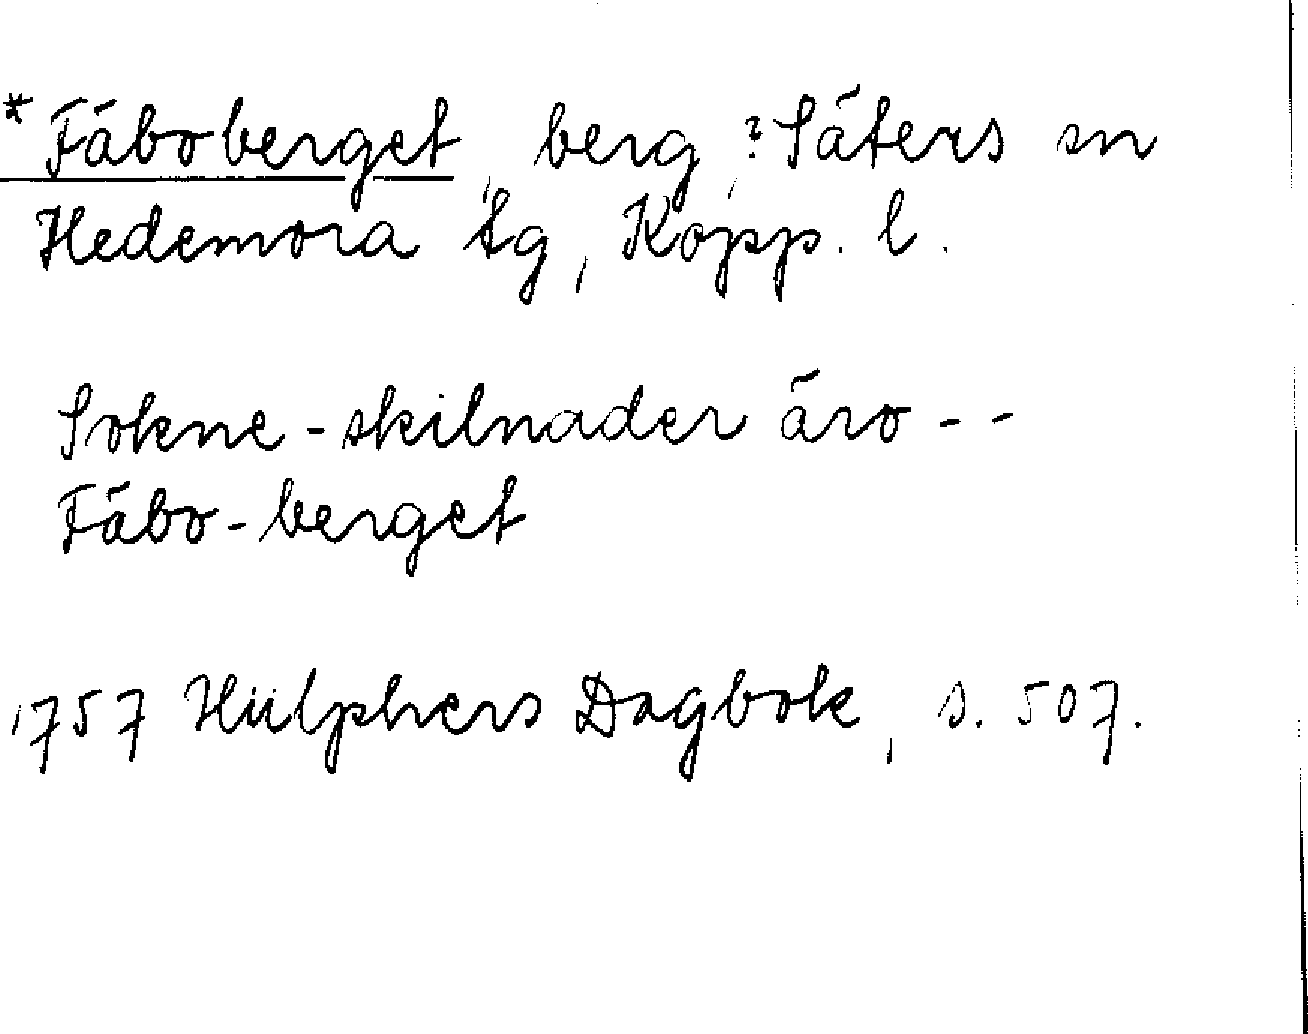 *Fäboberget, berg, ?Säters sn
Hedemora tg, Kopp. l.
Sokne-skilnader äro - -
Fäbo-berget
1757 Hülphers Dagbok, s. 507.